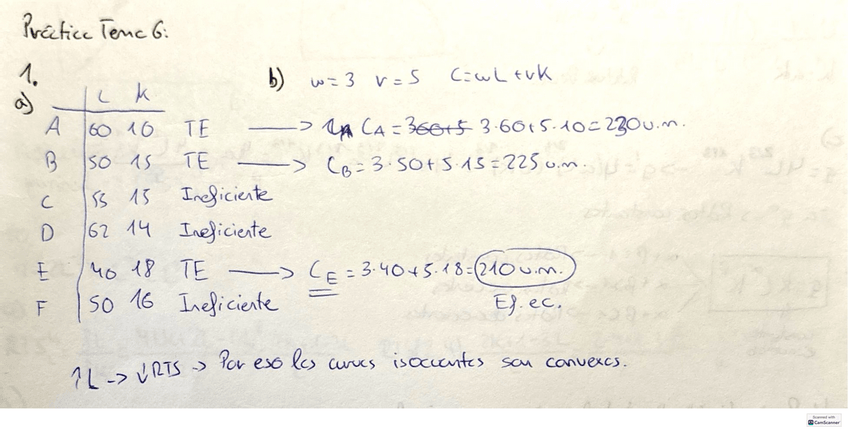 Práctica Tema 6:
1.
a)
L K
A 60 10 TE
B 50 15 TE
C 55 15 Ineficiente
D 62 14 Ineficiente
E 40 18 TE
F 50 16 Ineficiente
b) w=3 v=5 C=wL+vK
→ C_A = 3·60+5·10=230 u.m.
→ C_B = 3·50+5·15=225 u.m.
→ C_E = 3·40+5·18=210 u.m.
Ef. ec.
↑L → ↓RTS → Por eso las curvas isocuantes son convexas.
Scanned with
CamScanner